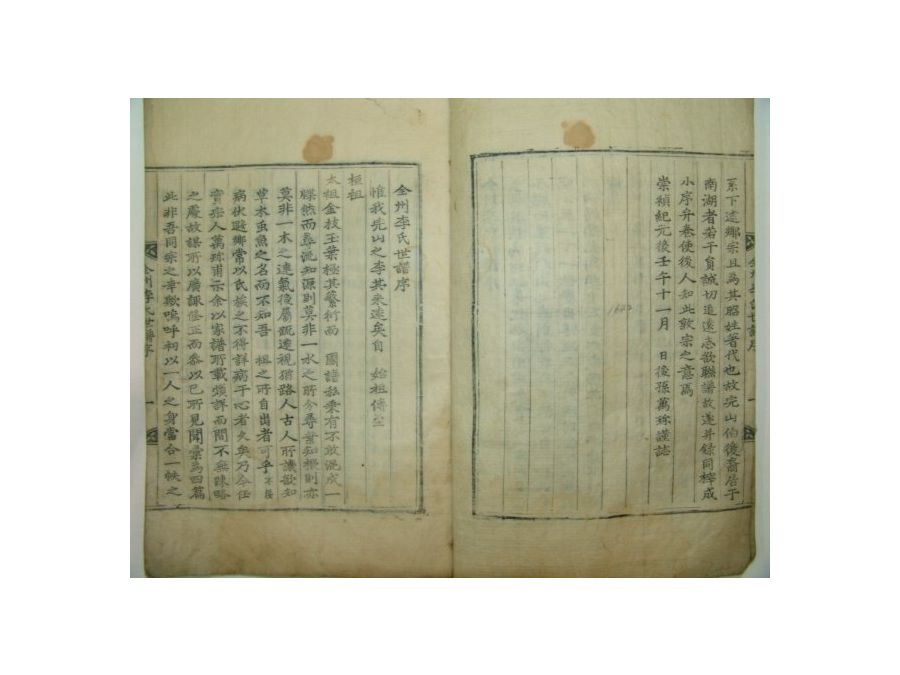 系下逮鄉宗且為其昭姓著代也故完山伯後裔居于
南湖者若干員誠切追遠志欲聯譜故遂并錄同梓成
小序弁卷使後人知此敦宗之意焉
崇禎紀元後壬午十一月 日後孫萬珎謹誌
全州李氏世譜序
惟我完山之李其來遠矣自 始祖傳至
桓祖
太祖金枝玉葉極其蕃衍而 國譜私乘有不敢混成一
牒然而尋流知源則莫非一水之所分尋葉知根則亦
莫非一木之連氣後屬既遠視猶路人古人所譏欲知
草木虫魚之名而不知吾 祖之所自出者可乎不佞
病伏遐鄉常以氏族之不得詳病于心者久矣乃今任
實宗人萬珎甫示余以家譜所載頗詳而間不無踈略
之處故謀所以廣諏修正而參以已所見聞彙為四篇
此非吾同宗之幸歟嗚呼初以一人之身當合一帙之
全州李氏世譜序 一